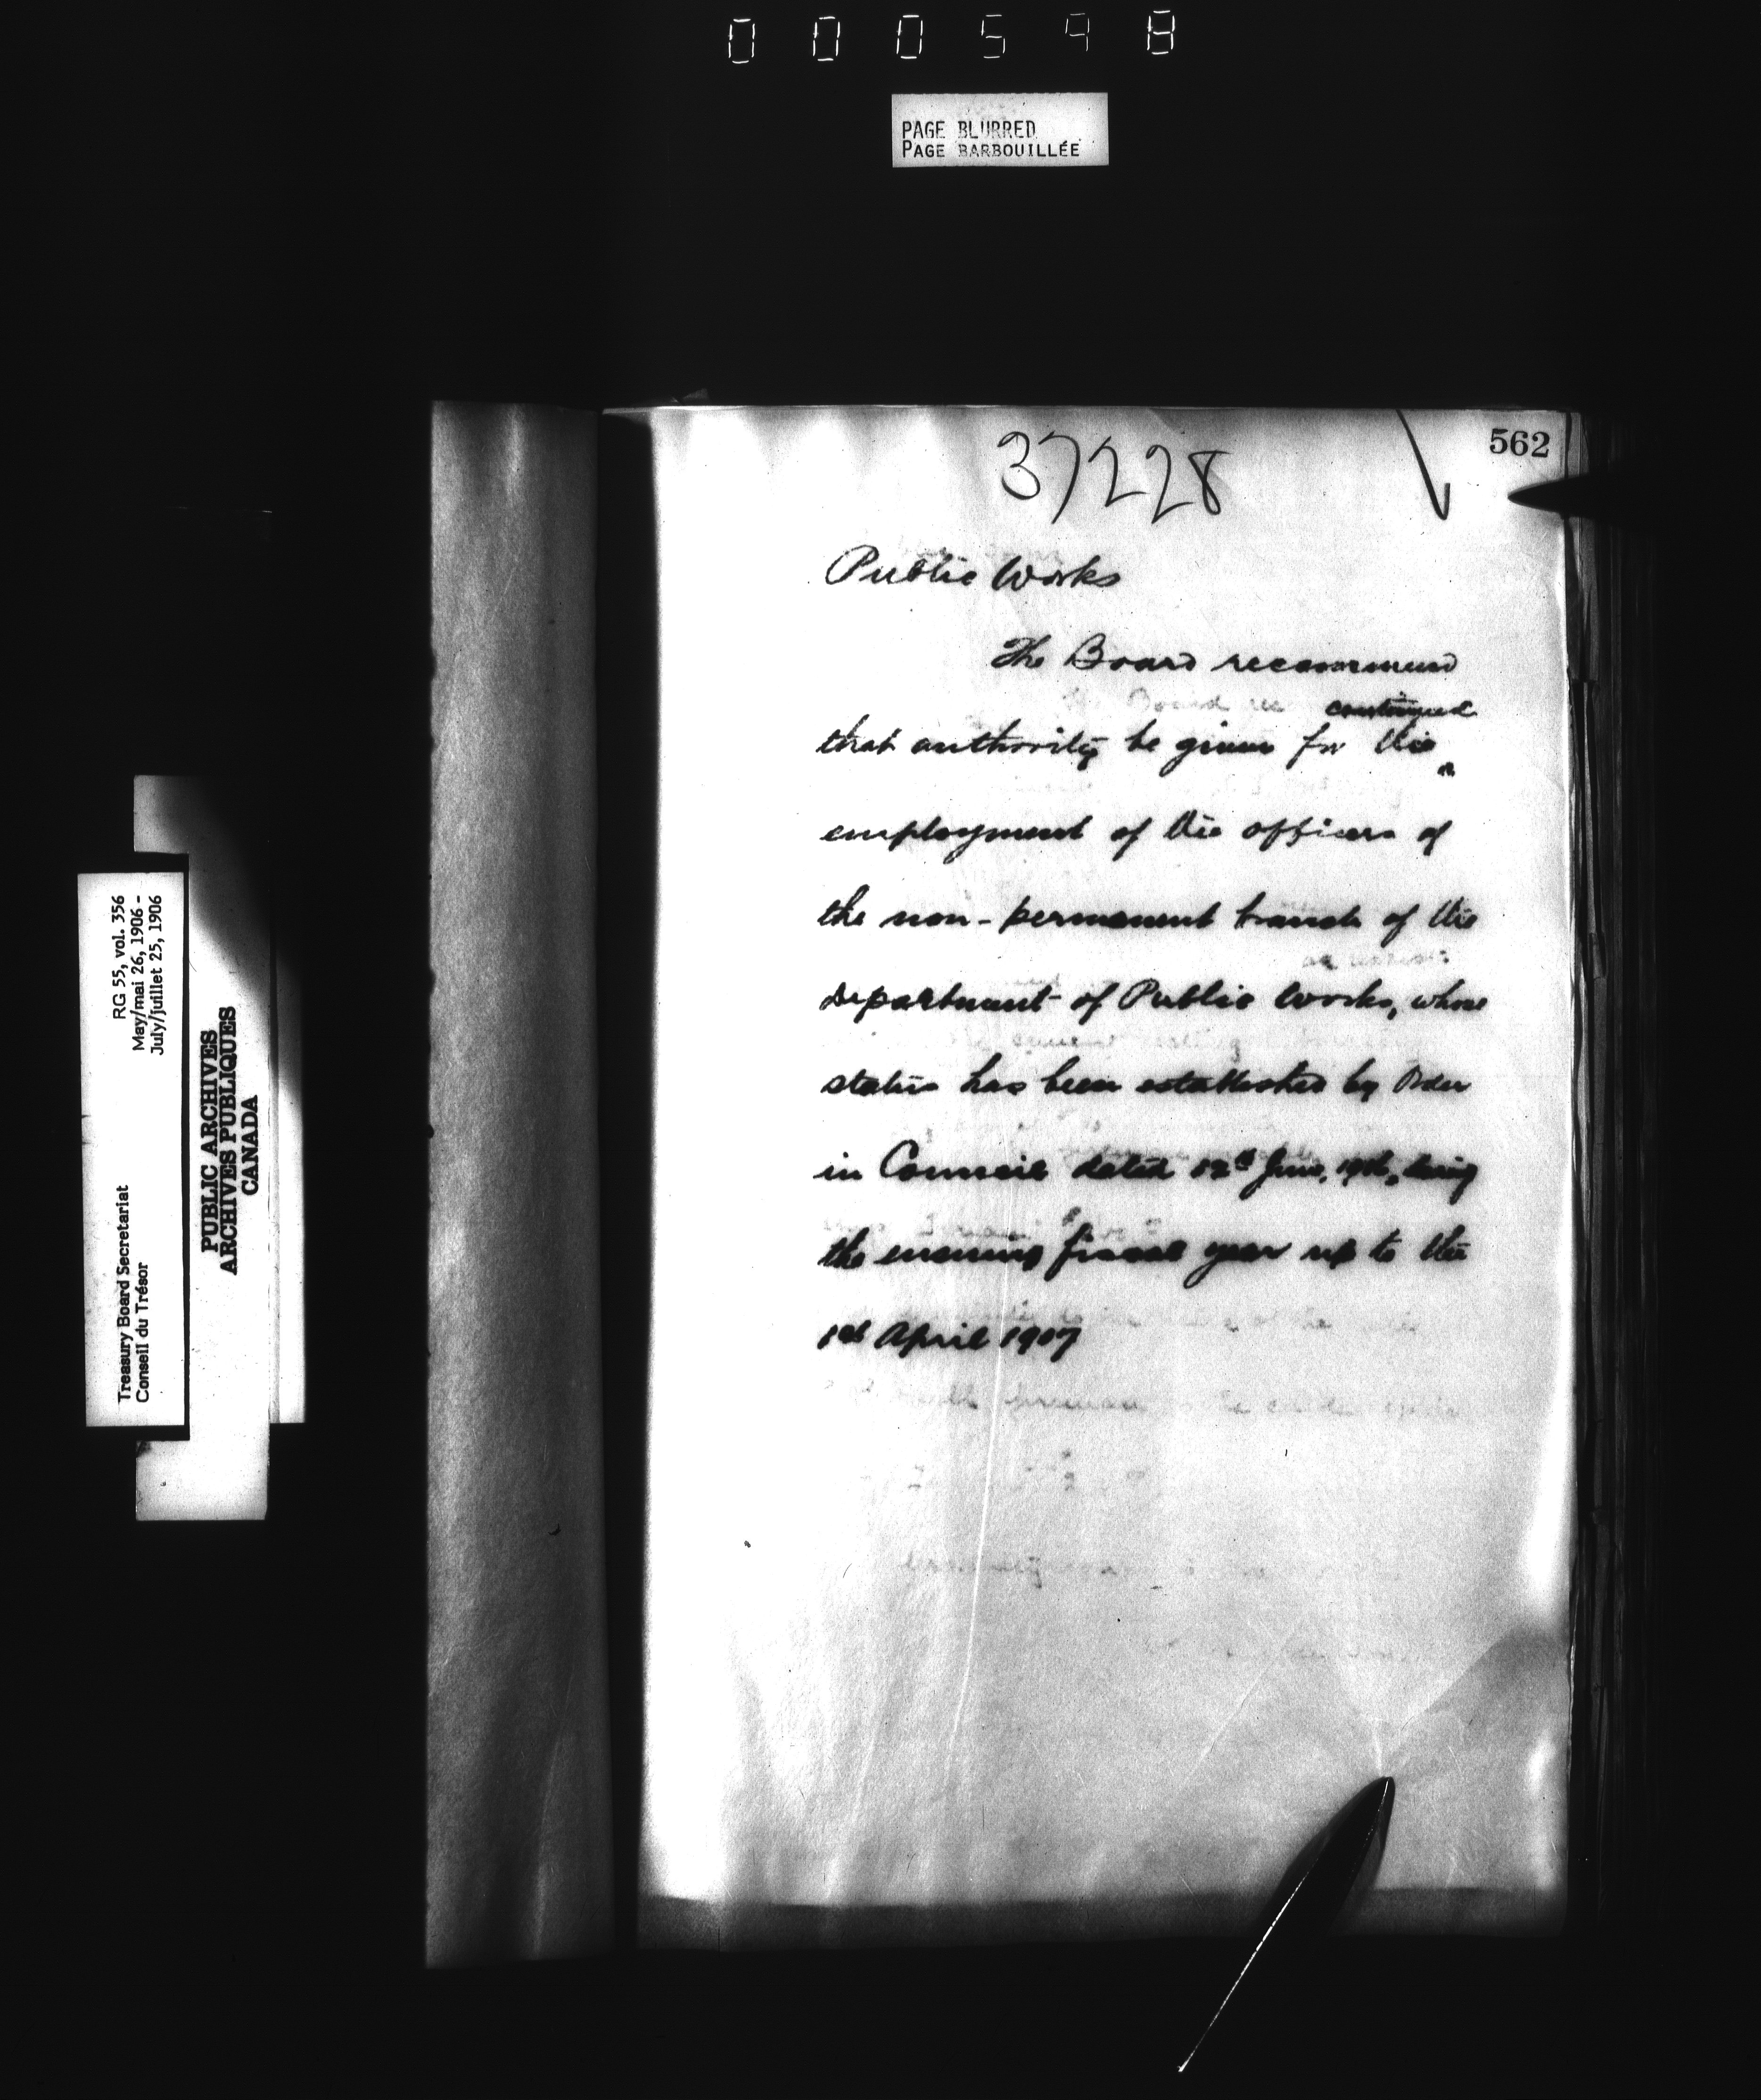 000598
PAGE BLURRED
PAGE BARBOUILLÉE
562
37228
Public Works
The Board recommend
continued
that authority be given for the
employment of the officers of
the non-permanent branch of the
department of Public Works, whose
status has been established by Order
in Council dated 12th June, 1906, during
the ensuing fiscal year up to the
1st April 1907
RG 55, vol. 356
May/mai 26, 1906 -
July/juillet 25, 1906
Treasury Board Secretariat
Conseil du Trésor
PUBLIC ARCHIVES
ARCHIVES PUBLIQUES
CANADA